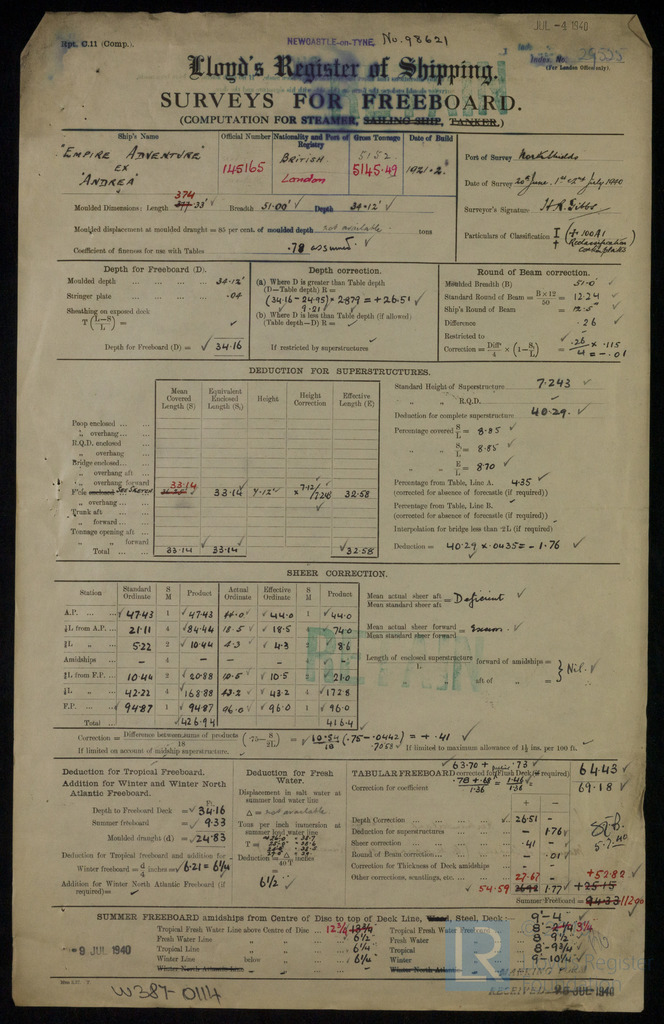 JUL -4 1940
Rpt. C.11 (Comp.).
NEWCASTLE-on-TYNE. No. 98621
Index No. 29535
(For London Office only).
Lloyd's Register of Shipping.
SURVEYS FOR FREEBOARD.
(COMPUTATION FOR STEAMER, SAILING SHIP, TANKER.)
Ship's Name Official Number Nationality and Port of Registry Gross Tonnage Date of Build
"EMPIRE ADVENTURE" EX "ANDREA" 145165 BRITISH London 5152 5145.49 1921-2
Port of Survey North Shields
Date of Survey 20th June, 1st & 5th July 1940
Surveyor's Signature H.R. Gibbs
Particulars of Classification +100A1 (Reclassification contemplated)
Moulded Dimensions: Length 374 377.33' Breadth 51.00' Depth 34.12'
Moulded displacement at moulded draught = 85 per cent. of moulded depth not available tons
Coefficient of fineness for use with Tables .78 assumed.
Depth for Freeboard (D).
Moulded depth ... 34.12'
Stringer plate ... .04
Sheathing on exposed deck
T (L-S / L) =
Depth for Freeboard (D) = 34.16
Depth correction.
(a) Where D is greater than Table depth
(D—Table depth) R =
(34.16 - 24.95) × 2.879 = + 26.51
9.21
(b) Where D is less than Table depth (if allowed)
(Table depth—D) R =
If restricted by superstructures
Round of Beam correction.
Moulded Breadth (B) 51.0'
Standard Round of Beam = B×12 / 50 = 12.24
Ship's Round of Beam = 12.5"
Difference .26
Restricted to
Correction = Diffce / 4 × (1 - S1 / L) = .26 / 4 × .115 = -.01
DEDUCTION FOR SUPERSTRUCTURES.
Mean Covered Length (S) Equivalent Enclosed Length (S1) Height Height Correction Effective Length (E)
Poop enclosed
" overhang
R.Q.D. enclosed
" overhang
Bridge enclosed
" overhang aft
" overhang forward
F'cle enclosed 33.14 33.14 7.12' × 7.12/7.243 32.58
" overhang
Trunk aft
" forward
Tonnage opening aft
" " forward
Total 33.14 33.14 32.58
Standard Height of Superstructure 7.243
" " R.Q.D. -
Deduction for complete superstructure 40.29.
Percentage covered S / L = 8.85
" " S1 / L = 8.85
" " E / L = 8.70
Percentage from Table, Line A. 4.35
(corrected for absence of forecastle (if required))
Percentage from Table, Line B.
(corrected for absence of forecastle (if required))
Interpolation for bridge less than .2L (if required)
Deduction = 40.29 × .0435 = - 1.76
SHEER CORRECTION.
Station Standard Ordinate S M Product Actual Ordinate Effective Ordinate S M Product
A.P. 47.43 1 47.43 44.0 44.0 1 44.0
⅙L from A.P. 21.11 4 84.44 18.5 18.5 4 74.0
⅓L " 5.22 2 10.44 4.3 4.3 2 8.6
Amidships - 4 - - - 4 -
⅓L from F.P. 10.44 2 20.88 10.5 10.5 2 21.0
⅙L " 42.22 4 168.88 43.2 43.2 4 172.8
F.P. 94.87 1 94.87 96.0 96.0 1 96.0
Total 426.94 416.4
Mean actual sheer aft / Mean standard sheer aft = Deficient
Mean actual sheer forward / Mean standard sheer forward = Excess.
Length of enclosed superstructure / L forward of amidships = aft of " = } Nil.
Correction = Difference between sums of products / 18 (.75 - S / 2L) = 10.54 / 18 (.75 - .0442) = + .41
.7058
If limited on account of midship superstructure.
If limited to maximum allowance of 1½ ins. per 100 ft.
Deduction for Tropical Freeboard.
Addition for Winter and Winter North Atlantic Freeboard.
Depth to Freeboard Deck = 34.16
Summer freeboard = 9.33
Moulded draught (d) = 24.83
Deduction for Tropical freeboard and addition for Winter freeboard = d / 4 inches = 6.21 = 6¼
Addition for Winter North Atlantic Freeboard (if required) =
Deduction for Fresh Water.
Displacement in salt water at summer load water line
Δ = not available
Tons per inch immersion at summer load water line
T =
Deduction = Δ / 40 T inches
= 6½
TABULAR FREEBOARD corrected for Flush Deck (if required) 63.70 + .73 64.43
Correction for coefficient .78 + .68 / 1.36 = 1.46 / 1.36 69.18
+ -
Depth Correction 26.51 -
Deduction for superstructures - 1.76
Sheer correction .41 -
Round of Beam correction - .01
Correction for Thickness of Deck amidships
Other corrections, scantlings, etc. 27.67 +52.82
54.59 26.92 1.77 +25.15
Summer Freeboard = 94.33 112.00
5.7.40
SUMMER FREEBOARD amidships from Centre of Disc to top of Deck Line, Wood, Steel, Deck :- 9'-4
Tropical Fresh Water Line above Centre of Disc ... 12¾ Tropical Fresh Water Freeboard 8'-3¼
Fresh Water Line " " 6½ Fresh Water " 8-9½
Tropical Line " " 6¼ Tropical " 8-9¾
Winter Line below " " 6¼ Winter " 9-10¼
Winter North Atlantic Line " " Winter North Atlantic "
9 JUL 1940
MARKING FORM
RECEIVED JUL 1940
W387-0114
RETAIN
LR